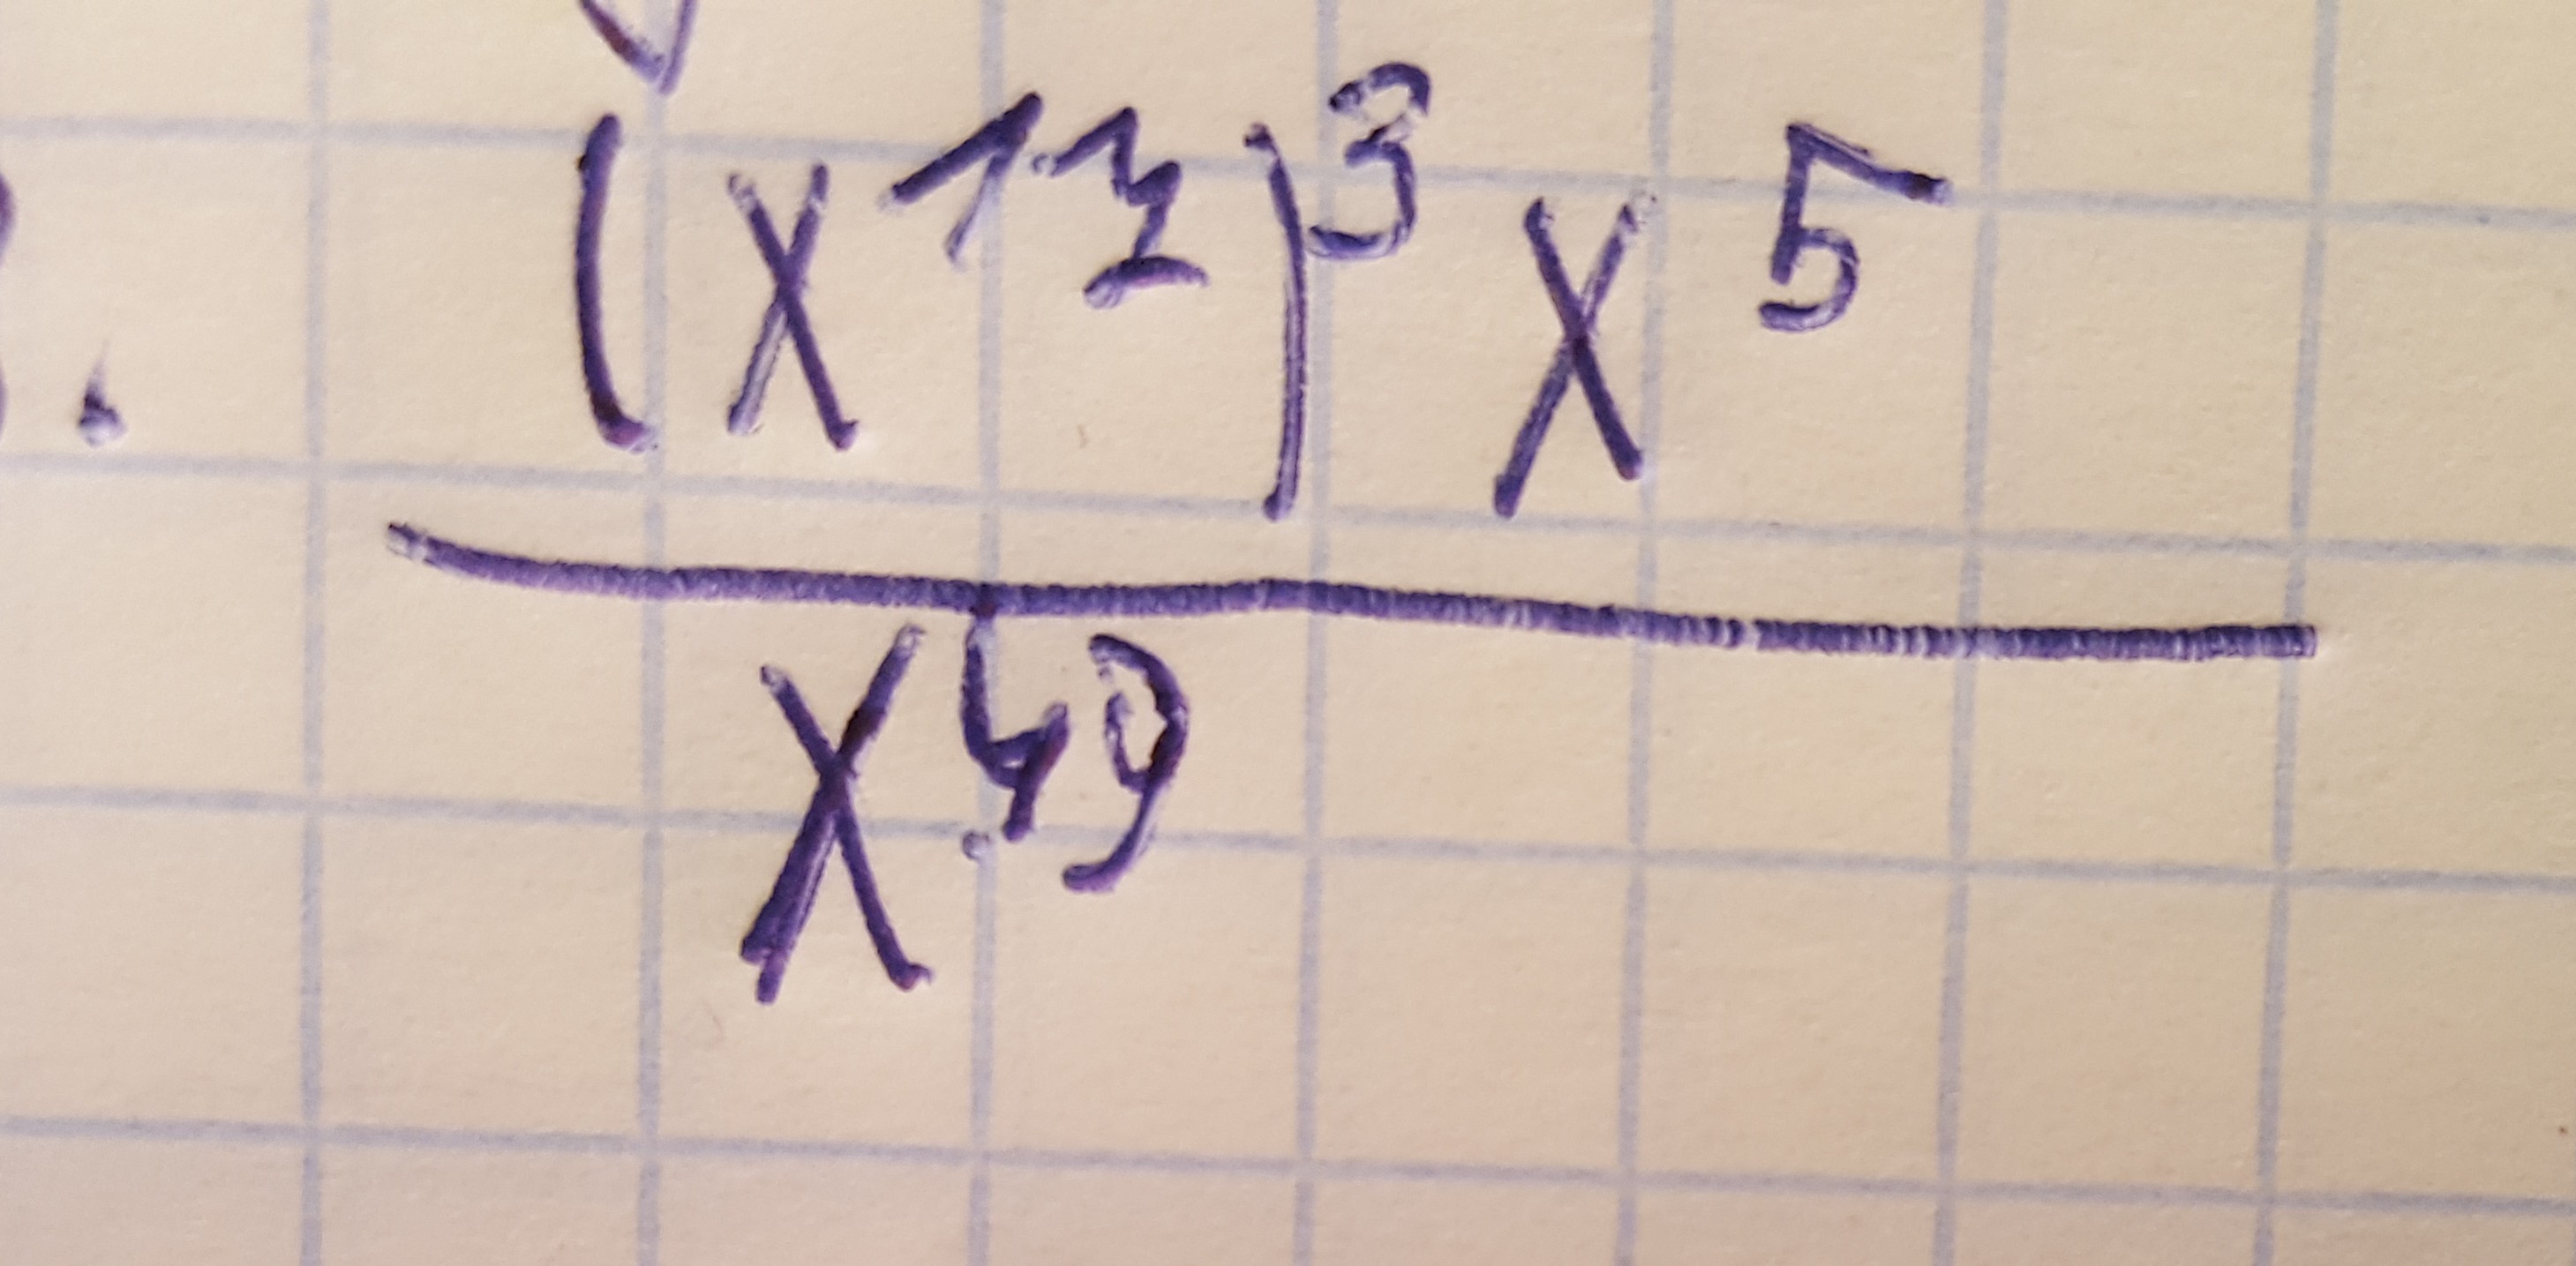 (x¹³)³ x⁵
x⁴⁹